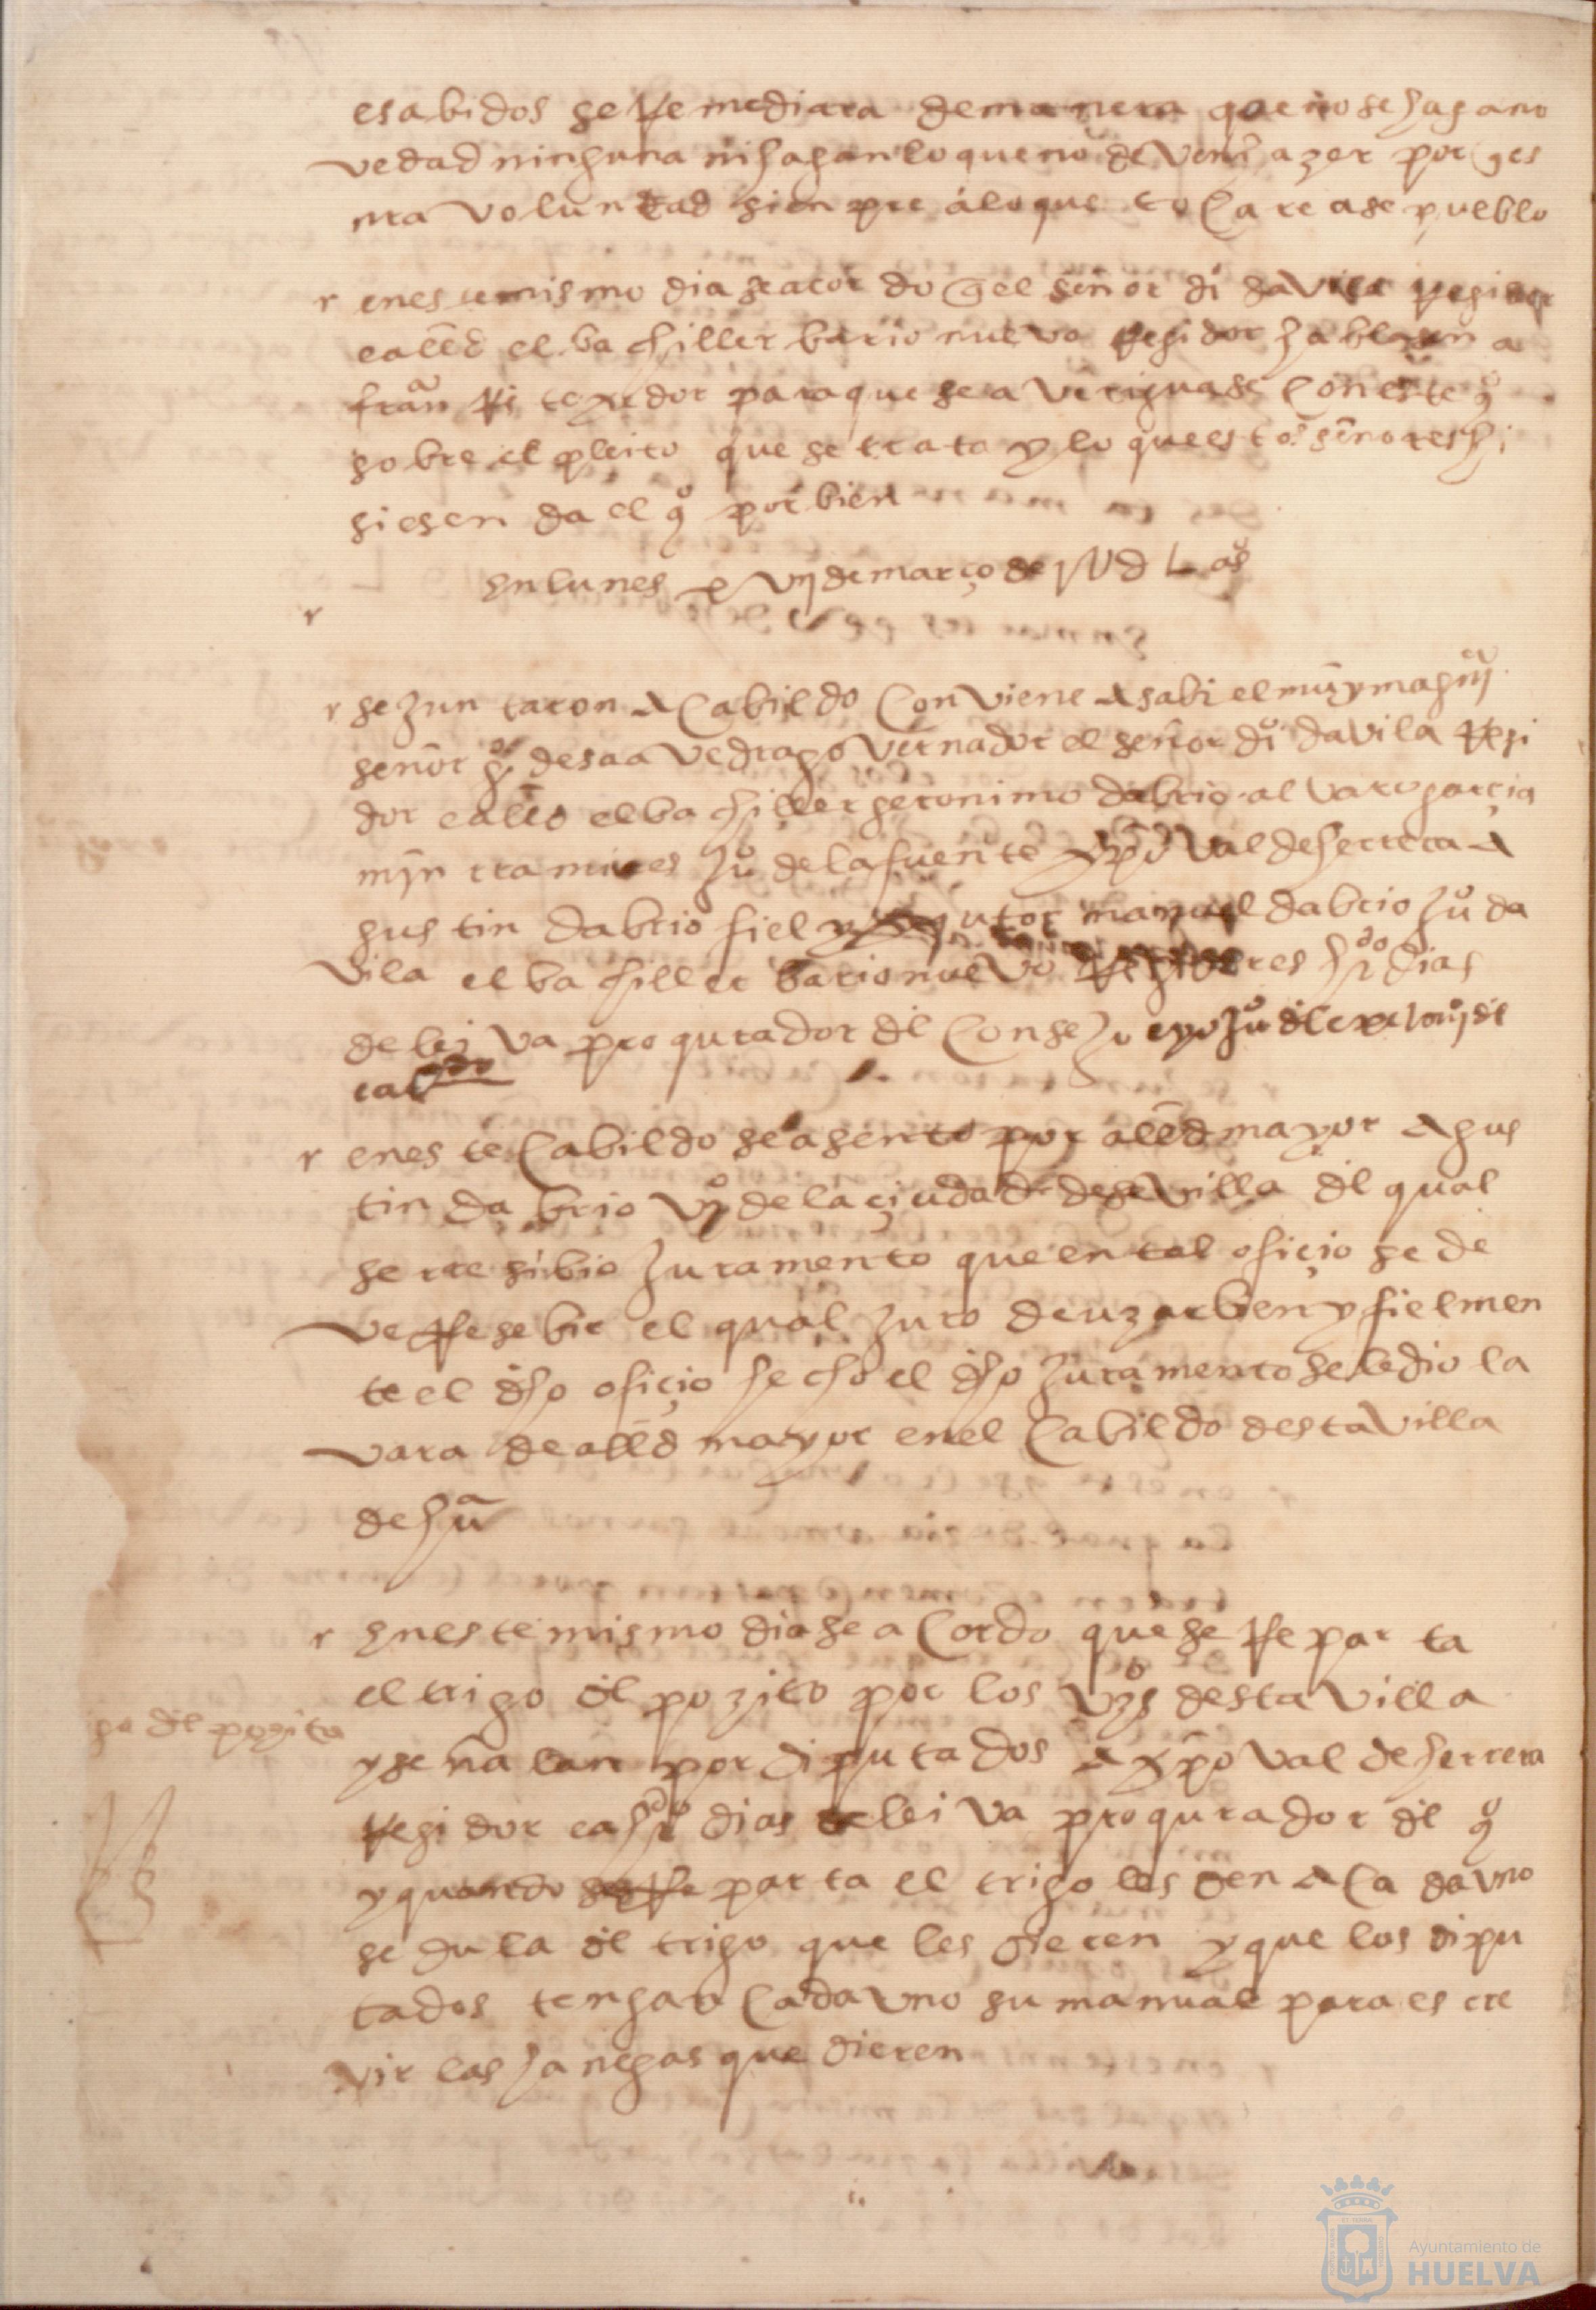 esabidos se Remediara demanera queno se hagano
vedad ninguna ni hagan lo que no deven hazer por ques
nra voluntad sienpre a lo que tocare a ese pueblo
r eneste mismo dia se acordo quel señor dio davila Regidor
e alld el bachiller barionuevo Regidor hablasen a
franco texedor para que se averiguase con este qo
sobre el pleito que se trata y lo que estos señores hi
siesen da el qo por bien
en lunes xvij de março de 1Ud L aos
r
r se juntaron A Cabildo Conviene A sabi el muy magco
señor go de saavedra governador el señor dio davila Regi
dor e alld el bachiller geronimo dabrio alvaro garçia
myn rramires juo de la fuente xpoval de herrera A
gustin dabrio fiel y xecutor manuel dabrio juo da
vila el bachiller barionuevo Regidores hrdo dias
de leiva procurador del Consejo e yo juo del
cabdo
r eneste Cabildo se asento por alld mayor Agus
tin dabrio vzo de la çiudad de sevilla del qual
se rresibio juramento que en tal ofiçio se de
ve Resebir el qual juro de uzar bien y fielmen
te el dho ofiçio hecho el dho juramento se le dio la
vara de alld mayor en el Cabildo desta villa
de hua
r en este mismo dia se aCordo que se Reparta
el trigo del pozito por los vzos desta villa
del pozito
y señalan por diputados A xpoval de herrera
Regidor e a hrdo dias de leiva procurador del qo
y quando se Reparta el trigo les den A Cada uno
sedula del trigo que les dieren y que los dipu
tados tengan Cada uno su manual para escre
vir las hanegas que dieren
Ayuntamiento de
HUELVA